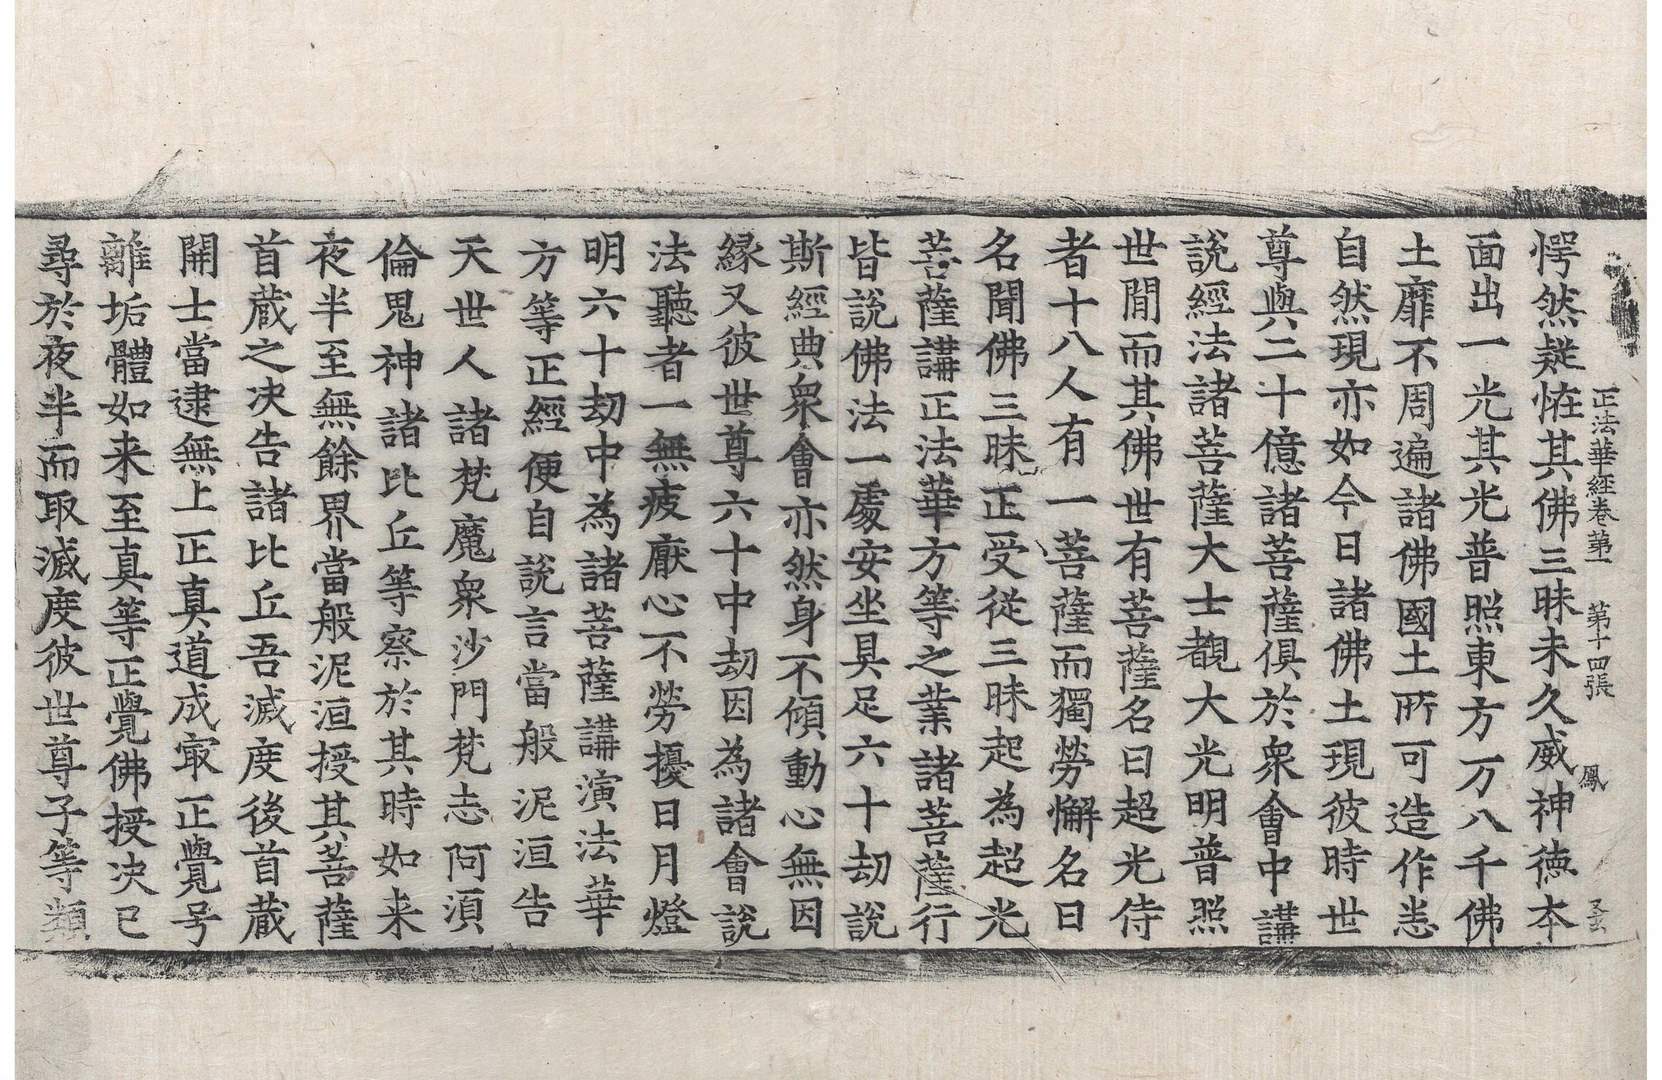 正法華經卷第一　第十四張　鳳
愕然疑恠其佛三昧未久威神德本
面出一光其光普照東方万八千佛
土靡不周遍諸佛國土所可造作悉
自然現亦如今日諸佛土現彼時世
尊與二十億諸菩薩俱於衆會中講
說經法諸菩薩大士覩大光明普照
世間而其佛世有菩薩名曰超光侍
者十八人有一菩薩而獨勞懈名曰
名聞佛三昧正受從三昧起為超光
菩薩講正法華方等之業諸菩薩行
皆說佛法一處安坐具足六十劫說
斯經典衆會亦然身不傾動心無因
縁又彼世尊六十中劫因為諸會說
法聽者一無疲厭心不勞擾日月燈
明六十劫中為諸菩薩講演法華
方等正經便自說言當般泥洹告
天世人諸梵魔衆沙門梵志阿須
倫鬼神諸比丘等察於其時如来
夜半至無餘界當般泥洹授其菩薩
首蔵之决告諸比丘吾滅度後首蔵
開士當逮無上正真道成㝡正覺号
離垢體如来至真等正覺佛授决已
尋於夜半而取滅度彼世尊子等類